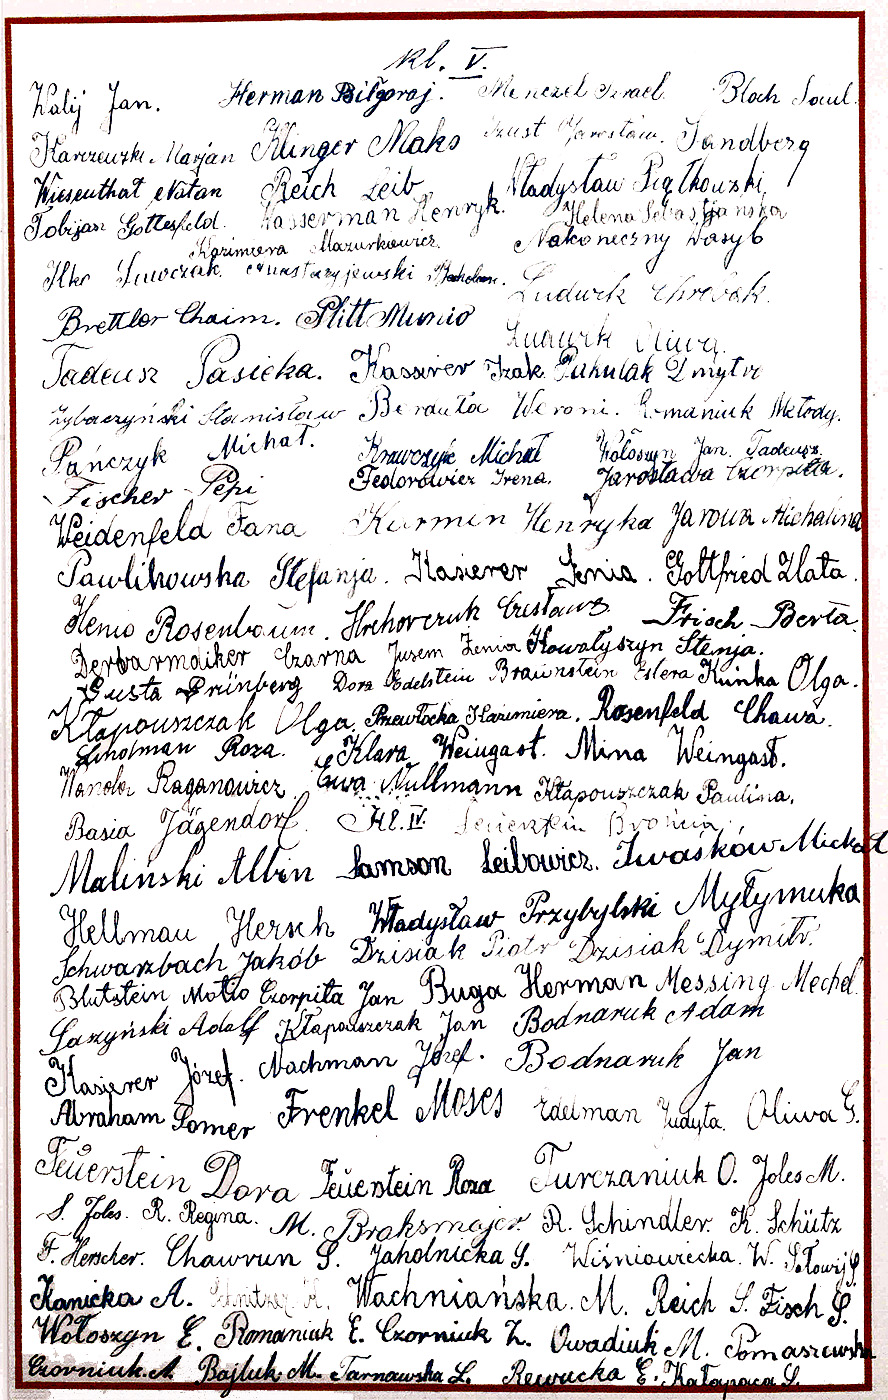 kl. V.
Walij Jan. Herman Biłgoraj. Menczel Izrael. Bloch Saul.
Karczewski Marjan Klinger Maks Jarosław. Sandberg
Wiesenthal Natan Reich Leib Władysław Piątkowski
Tobijan Gottesfeld. Wasserman Henryk. Helena Sebastjańska
Kazimiera Mazurkiewicz Nakoneczny Wasyb
Ilko Sawczak.
Ludwik Chrobak.
Brettler Chaim. Plitt Munio
Ludwik Oliwa.
Tadeusz Pasieka. Kassirer Izak Puhulak Dmytro
Zybaczyński Stanisław Berduła Weroni. Romaniuk Metody.
Pańczyk Michał. Krawczyk Michał Wołoszyn Jan. Tadeusz
Fischer Pepi Fedorowicz Irena. Jarosława Czorpita.
Weidenfeld Fana Kurmin Henryka Jarowa Michalina
Pawlikowska Stefanja. Kasierer Żenia. Gottfried Zlata.
Henio Rosenbaum. Hrehorczuk Czesława Frisch Berta.
Derbarmdiker Czarna Jusem Zenia Kowałyszyn Stenja.
Gusta Grünberg Dora Edelstein Braunstein Estera Kunka Olga.
Kłapouszczak Olga. Przewłocka Kazimiera. Rosenfeld Chawa.
Lindman Roza. Klara Weingast. Mina Weingast.
Wanda Raganowicz Ewa Nullmann Kłapouszczak Paulina.
Basia Jägendorf. Kl. IV. Feuerstein Brońcia
Maliński Albin Samson Leibowicz. Iwaśków Michał
Hellmau Hersch Władysław Przybylski Myłymuka
Schwarzbach Jakób Dzisiak Piotr Dzisiak Dymitr.
Blutstein Motio Czorpita Jan Buga Herman Messing Mechel
Saszyński Adolf Kłapouszczak Jan Bodnaruk Adam
Kasierer Józef. Nachman Józef. Bodnaruk Jan
Abraham Somer Frenkel Moses Edelman Judyta. Oliwa G.
Feuerstein Dora Feuerstein Roza Turczaniuk O. Joles M.
S. Joles. R. Regina. M. Braksmajer. R. Schindler. K. Schütz
F. Herscher. Chawrun S. Jaholnicka S. Wiśniowiecka. W. Sołowij S.
Kanicka A. Schnitzer K. Wachniańska. M. Reich S. Fisch S.
Wołoszyn E. Romaniuk E. Czorniuk Z. Owadiuk M. Pomaszewska
Czorniuk. A. Bajluk M. Tarnawska L. Rewucka E. Kałapaca S.